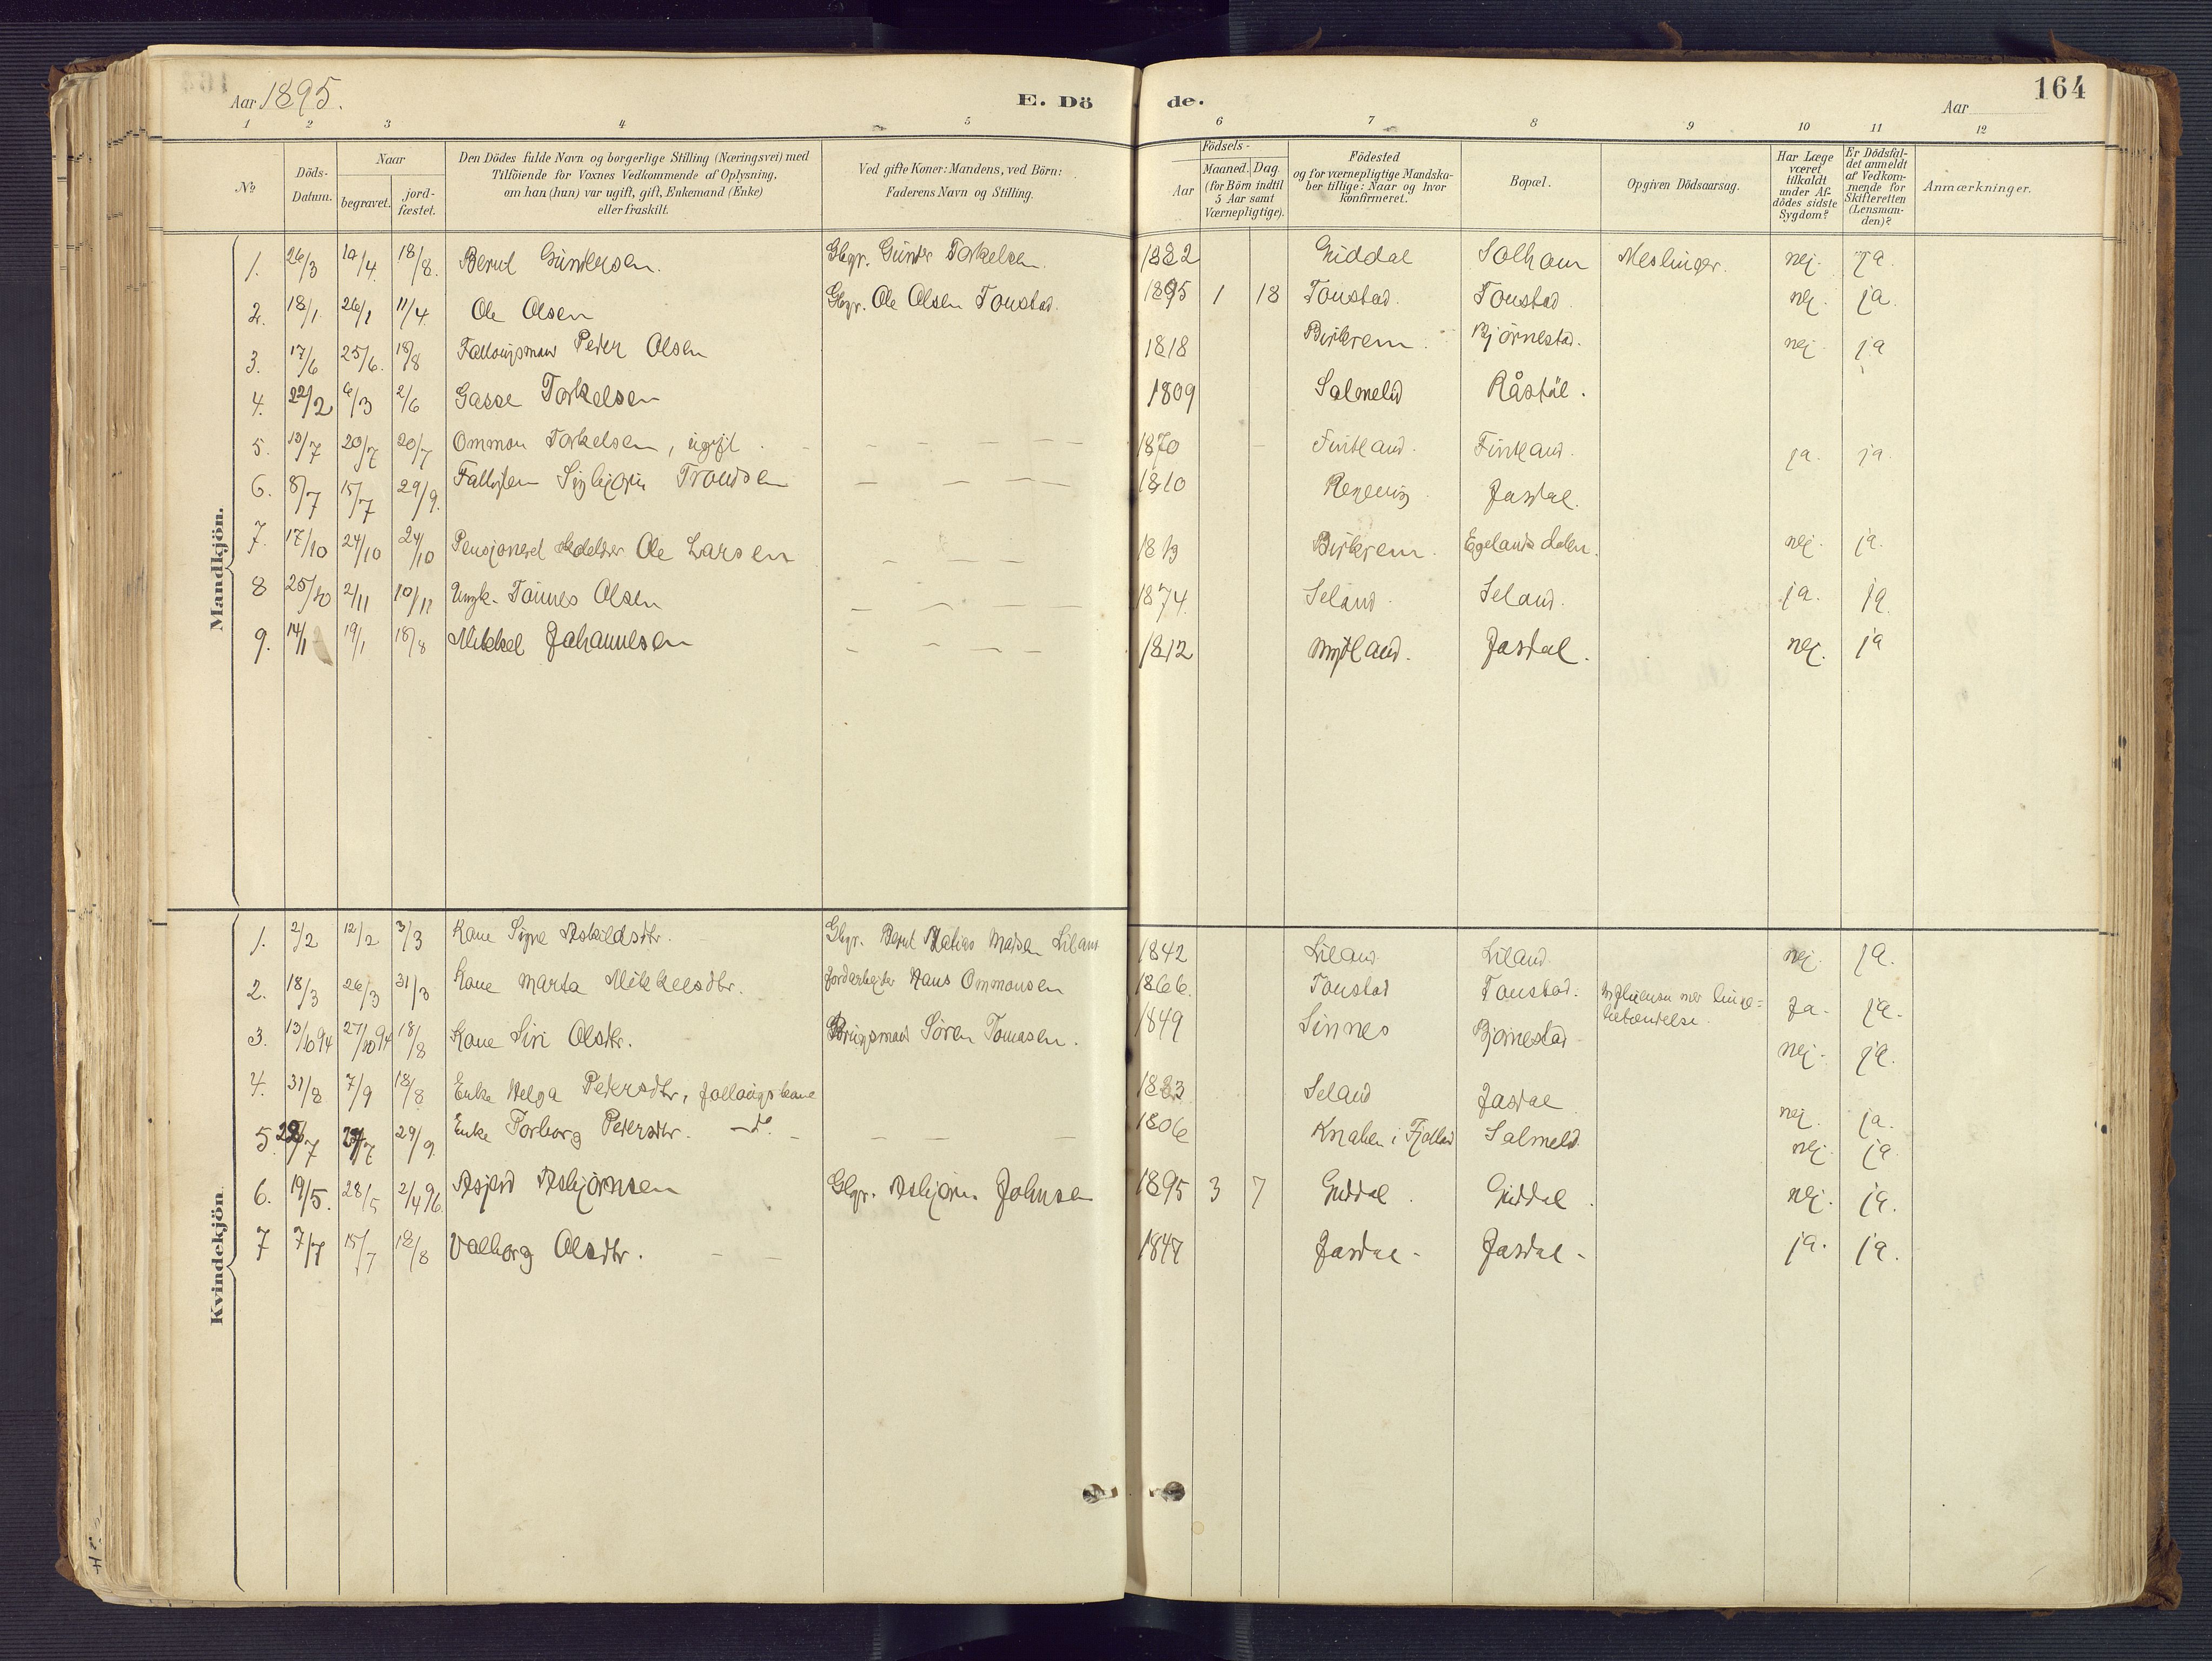 Aar 1895.
E. Dö
de.
Aar
164
1 2 3 4 5 6 7 8 9 10 11 12
No
Döds-Datum.
Naar
begravet.
jord-fæstet.
Den Dödes fulde Navn og borgerlige Stilling (Næringsvei) med
Tilföiende for Voxnes Vedkommende af Oplysning,
om han (hun) var ugift, gift, Enkemand (Enke)
eller fraskilt.
Ved gifte Koner: Mandens, ved Börn:
Faderens Navn og Stilling.
Födsels-
Aar
Maaned. Dag
(for Börn indtil
5 Aar samt
Værnepligtige).
Födested
og for værnepligtige Mandska-
ber tillige: Naar og hvor
konfirmeret.
Bopæl.
Opgiven Dödsaarsag.
Har Læge
været
tilkaldt
under Af-
dödes sidste
Sygdom?
Er Dödsfal-
det anmeldt
af Vedkom-
mende for
Skifteretten
(Lensman-
den)?
Anmærkninger.
Mandkjön.
1. 26/3 10/4. 18/8. Berut Guntersen. Gbgr. Gunter Torkelsen. 1882 Guddal Solhom Meslinger. nej. ja.
2. 18/1. 26/1 11/4 Ole Olsen Gbgr. Ole Olsen Tonstad. 1895 1 18 Tonstad. Tonstad. nej. ja.
3. 17/6 25/6. 18/8 Peder Olsen 1818 Birkrem. Björnestad. nej ja
4. 22/2 6/3 2/6 Gasse Torkelsen 1809 Salmelid Råstöl.
5. 13/7 20/7 20/7 Ommon Torkelsen, ugift. 1870 Fintland. Fintland. ja. ja.
6. 8/7 15/7 29/9. Sigbjörn Trondsen 1810 Josdal.
7. 17/10 24/10 24/10 Pensjoneret Ole Larsen 1819 Birkrem. Egelandsdalen. nej. ja.
8 25/10 2/11 10/11 Ungk. Tönnes Olsen 1874. Seland. Seland. ja. ja.
9. 14/1 19/1 18/8 Mikkel Johannesen 1812 Mydland. Josdal. nej. ja
Kvindekjön.
1. 2/2 12/2 3/3 Kone Signe Askildsdtr. Gbgr. Berut Matias Liland 1842 Liland Liland. nej. ja.
2. 18/3 26/3 31/3 Kone Marta Mikkelsdtr. Jordarbejder Hans Ommonsen 1866. Tonstad Tonstad. Influensa med lunge=
betændelse. Ja. ja.
3. 13/10 94 27/10 94 18/8 Kone Siri Olsdtr. Brugsmand Sören Tomasen. 1849 Sinnes Bjørnestad nej. ja.
4. 31/8 7/9 18/8 Enke Helga Petersdtr, 1883 Seland Josdal nej. ja.
5. 29/9. Enke Torborg Petersdtr. - do. 1806 Knaben i Fjotland Salmeld. nej. ja
6. 19/5. 28/5 2/4 96. Asbjörnsen Gbgr. Asbjörn Johnsen 1895 3 7 Guddal. Guddal. nej. ja.
7 7/7 15/7 18/8 Valborg Olsdtr. 1847 Josdal - Josdal - ja. ja.